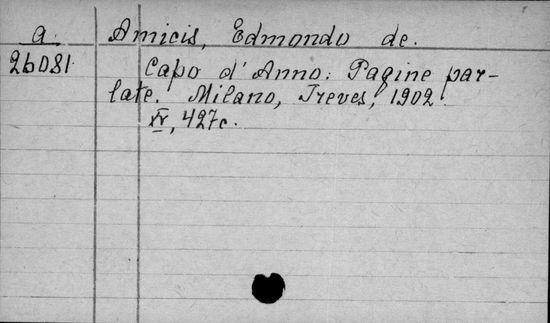 a. Amicis, Edmondo de.
26081 Capo d'Anno. Pagine par-
late. Milano, Treves, 1902.
XV, 427c.